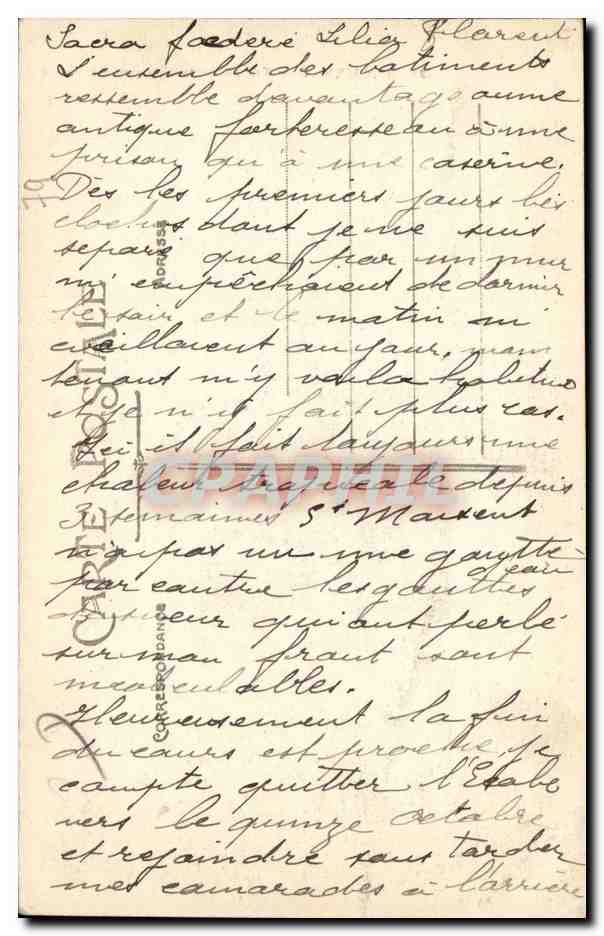 Sacra foedere Lilia Florent
L'ensemble des batiments
ressemble davantage a une
antique forteresse ou à une
prison qu'à une caserne.
Dès les premiers jours les
cloches dont je ne suis
separé que par un mur
m'empêchaient de dormir
le soir et le matin m'
eveillaient au jour, main
tenant m'y voila habitué
et je n'y fait plus cas.
Ici il fait toujours une
chaleur tropicale depuis
3 semaines St Maixent
n'a pas vu une goutte
d'eau
par contre les gouttes
de sueur qui ont perlé
sur mon front sont
incalculables.
Heureusement la fin
du cours est proche, je
compte quitter l'Ecole
vers le quinze Octobre
et rejoindre sans tarder
mes camarades à l'arrière
CARTE POSTALE
CORRESPONDANCE
ADRESSE
79
CPAPHIL